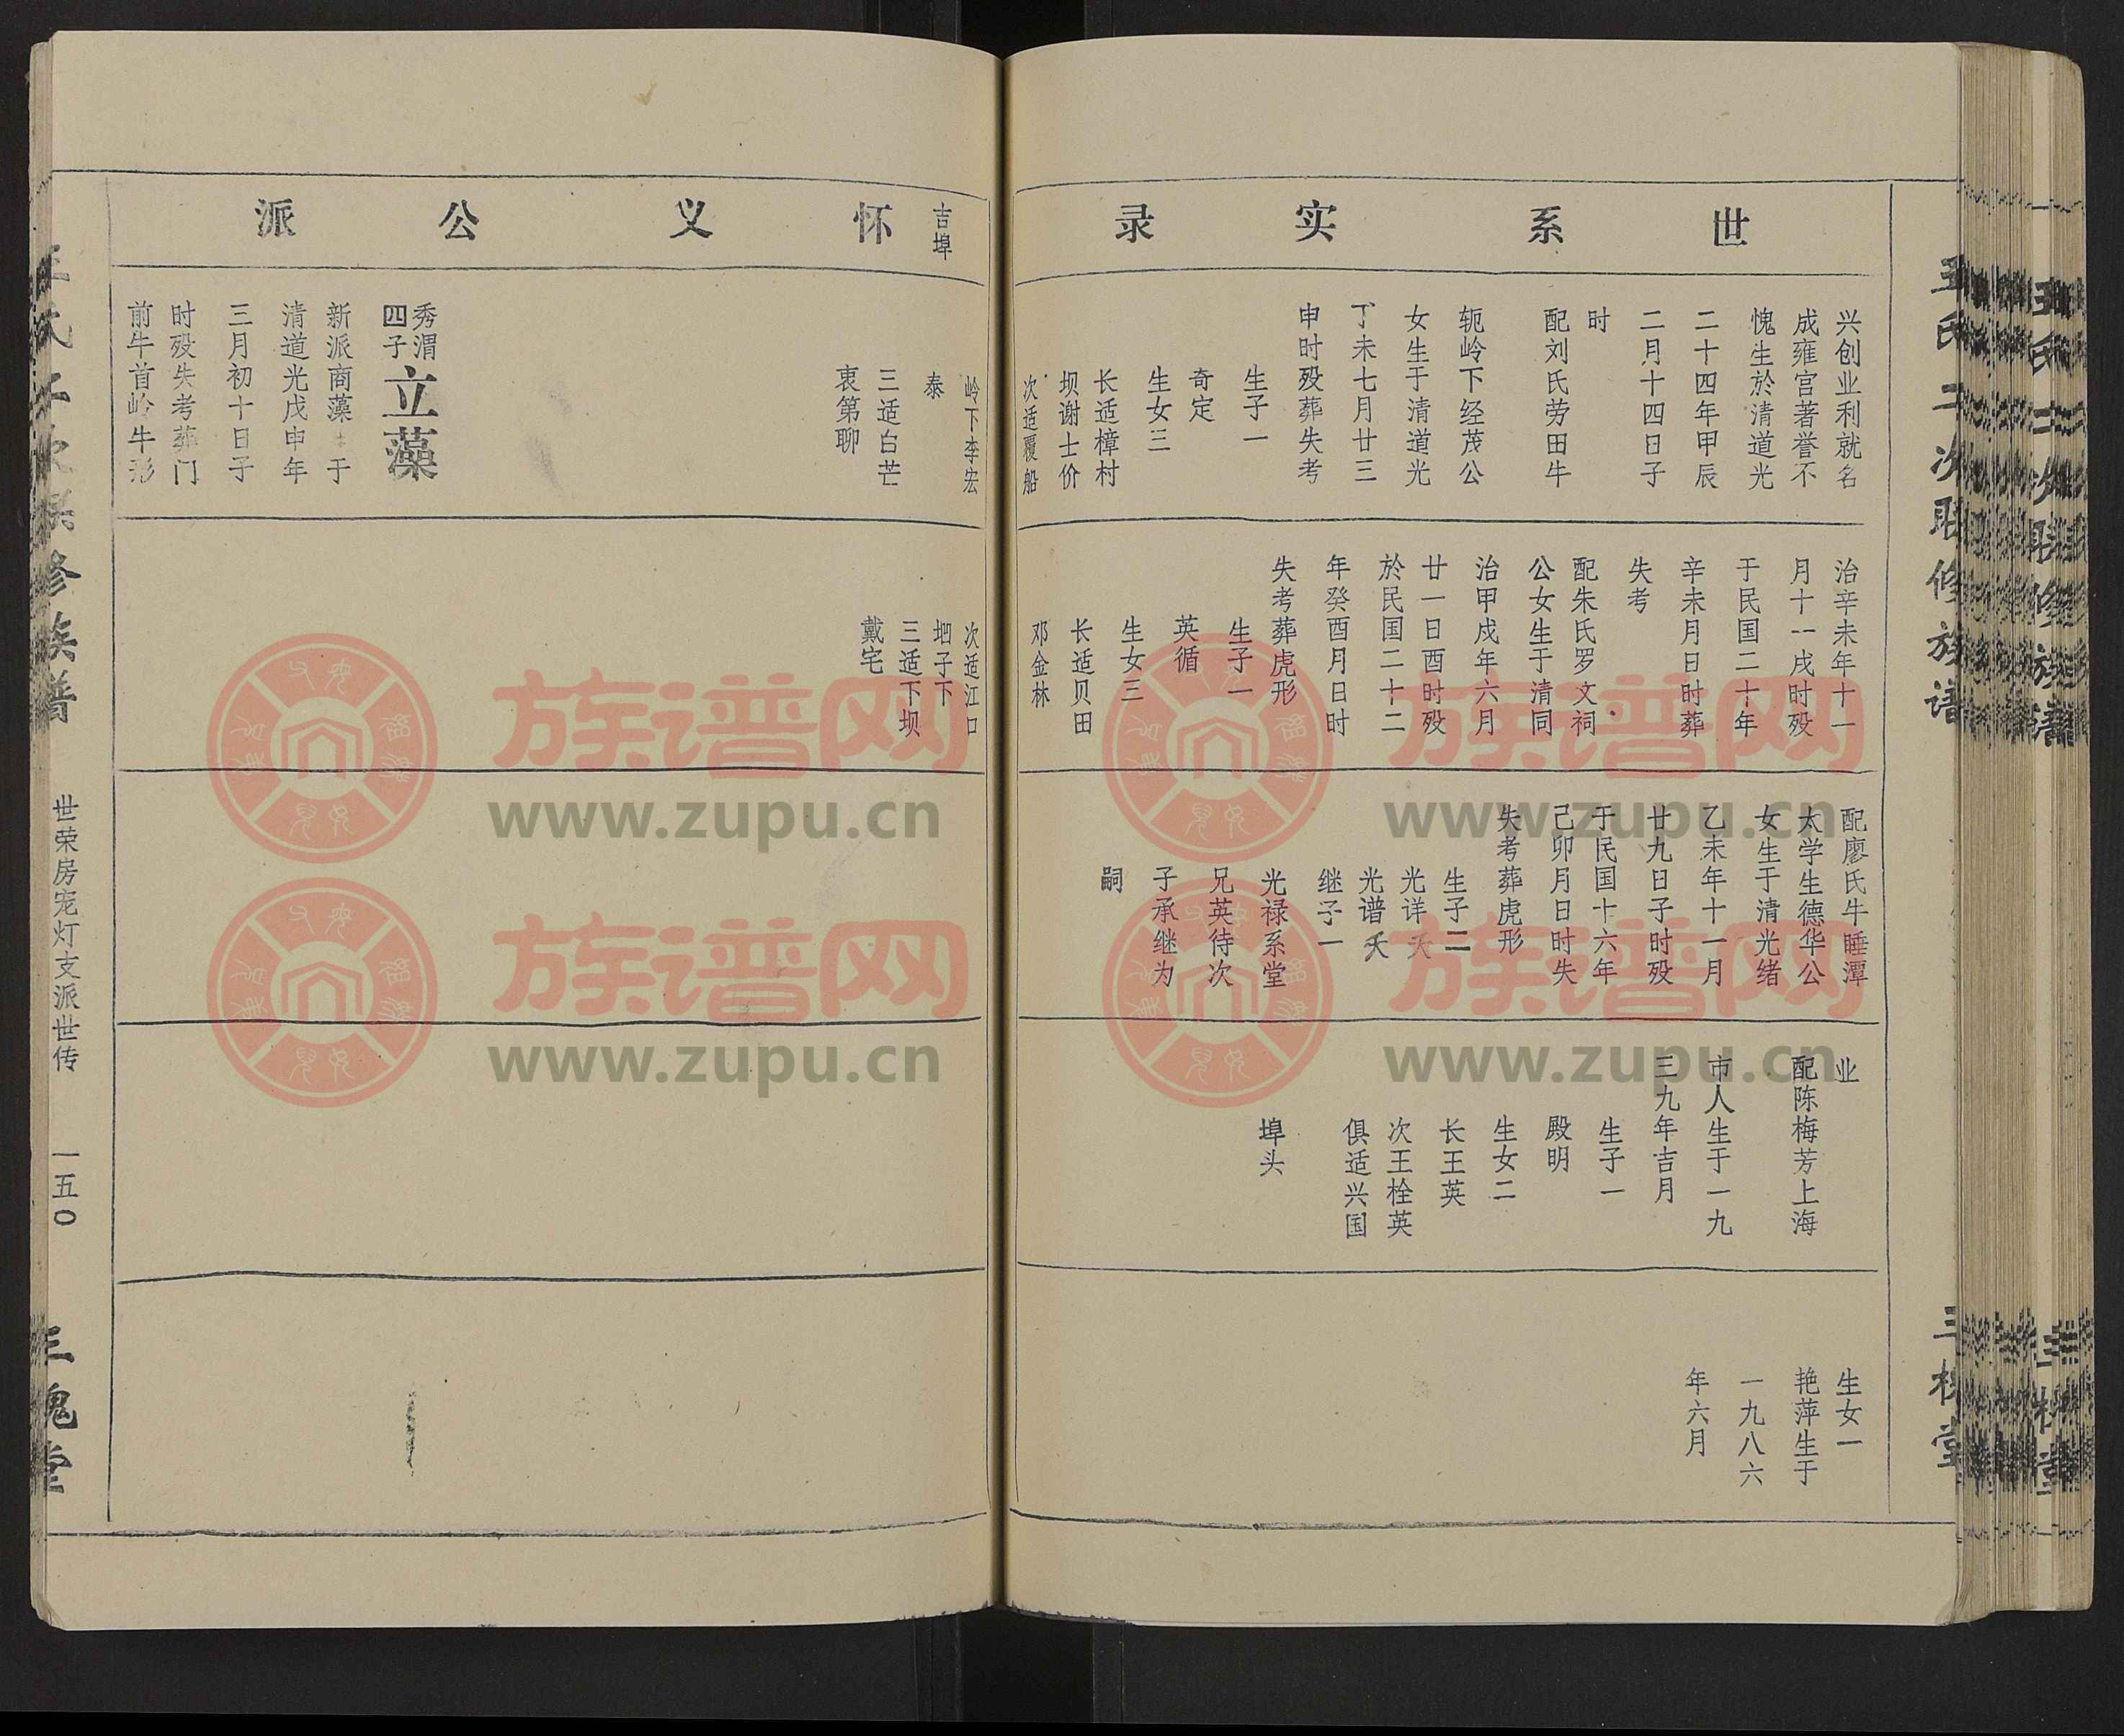 世系实录
兴创业利就名
成雍宫著誉不
愧生於清道光
二十四年甲辰
二月十四日子
时
配刘氏劳田牛
轭岭下经茂公
女生于清道光
丁未七月廿三
申时殁葬失考
生子一
奇定
生女三
长适樟村
坝谢士价
次适覆船
治辛未年十一
月十一戌时殁
于民国二十年
辛未月日时葬
失考
配朱氏罗文祠
公女生于清同
治甲戍年六月
廿一日酉时殁
於民国二十二
年癸酉月日时
失考葬虎形
生子一
英循
生女三
长适贝田
邓金林
配廖氏牛睡潭
太学生德华公
女生于清光绪
乙未年十一月
廿九日子时殁
于民国十六年
己卯月日时失
失考葬虎形
生子二
光详夭
光谱夭
继子一
光禄系堂
兄英待次
子承继为
嗣
业
配陈梅芳上海
市人生于一九
三九年吉月
生子一
殿明
生女二
长王英
次王栓英
俱适兴国
埠头
生女一
艳萍生于
一九八六
年六月
吉埠
怀义公派
岭下李宏
泰
三适白芒
衷第聊
秀渭
四子
立藻
新派商藻生于
清道光戊申年
三月初十日子
时殁失考葬门
前牛首岭牛形
次适江口
坦子下
三适下坝
戴宅
世荣房宠灯支派世传
一五〇
三槐堂
族谱网
www.zupu.cn
族谱网
www.zupu.cn
族谱网
www.zupu.cn
族谱网
www.zupu.cn